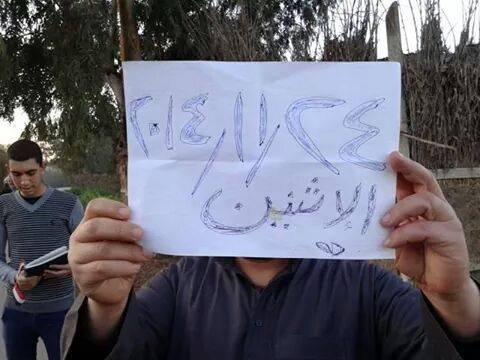 ٢٤/١١/٢٠١٤
الإثنين